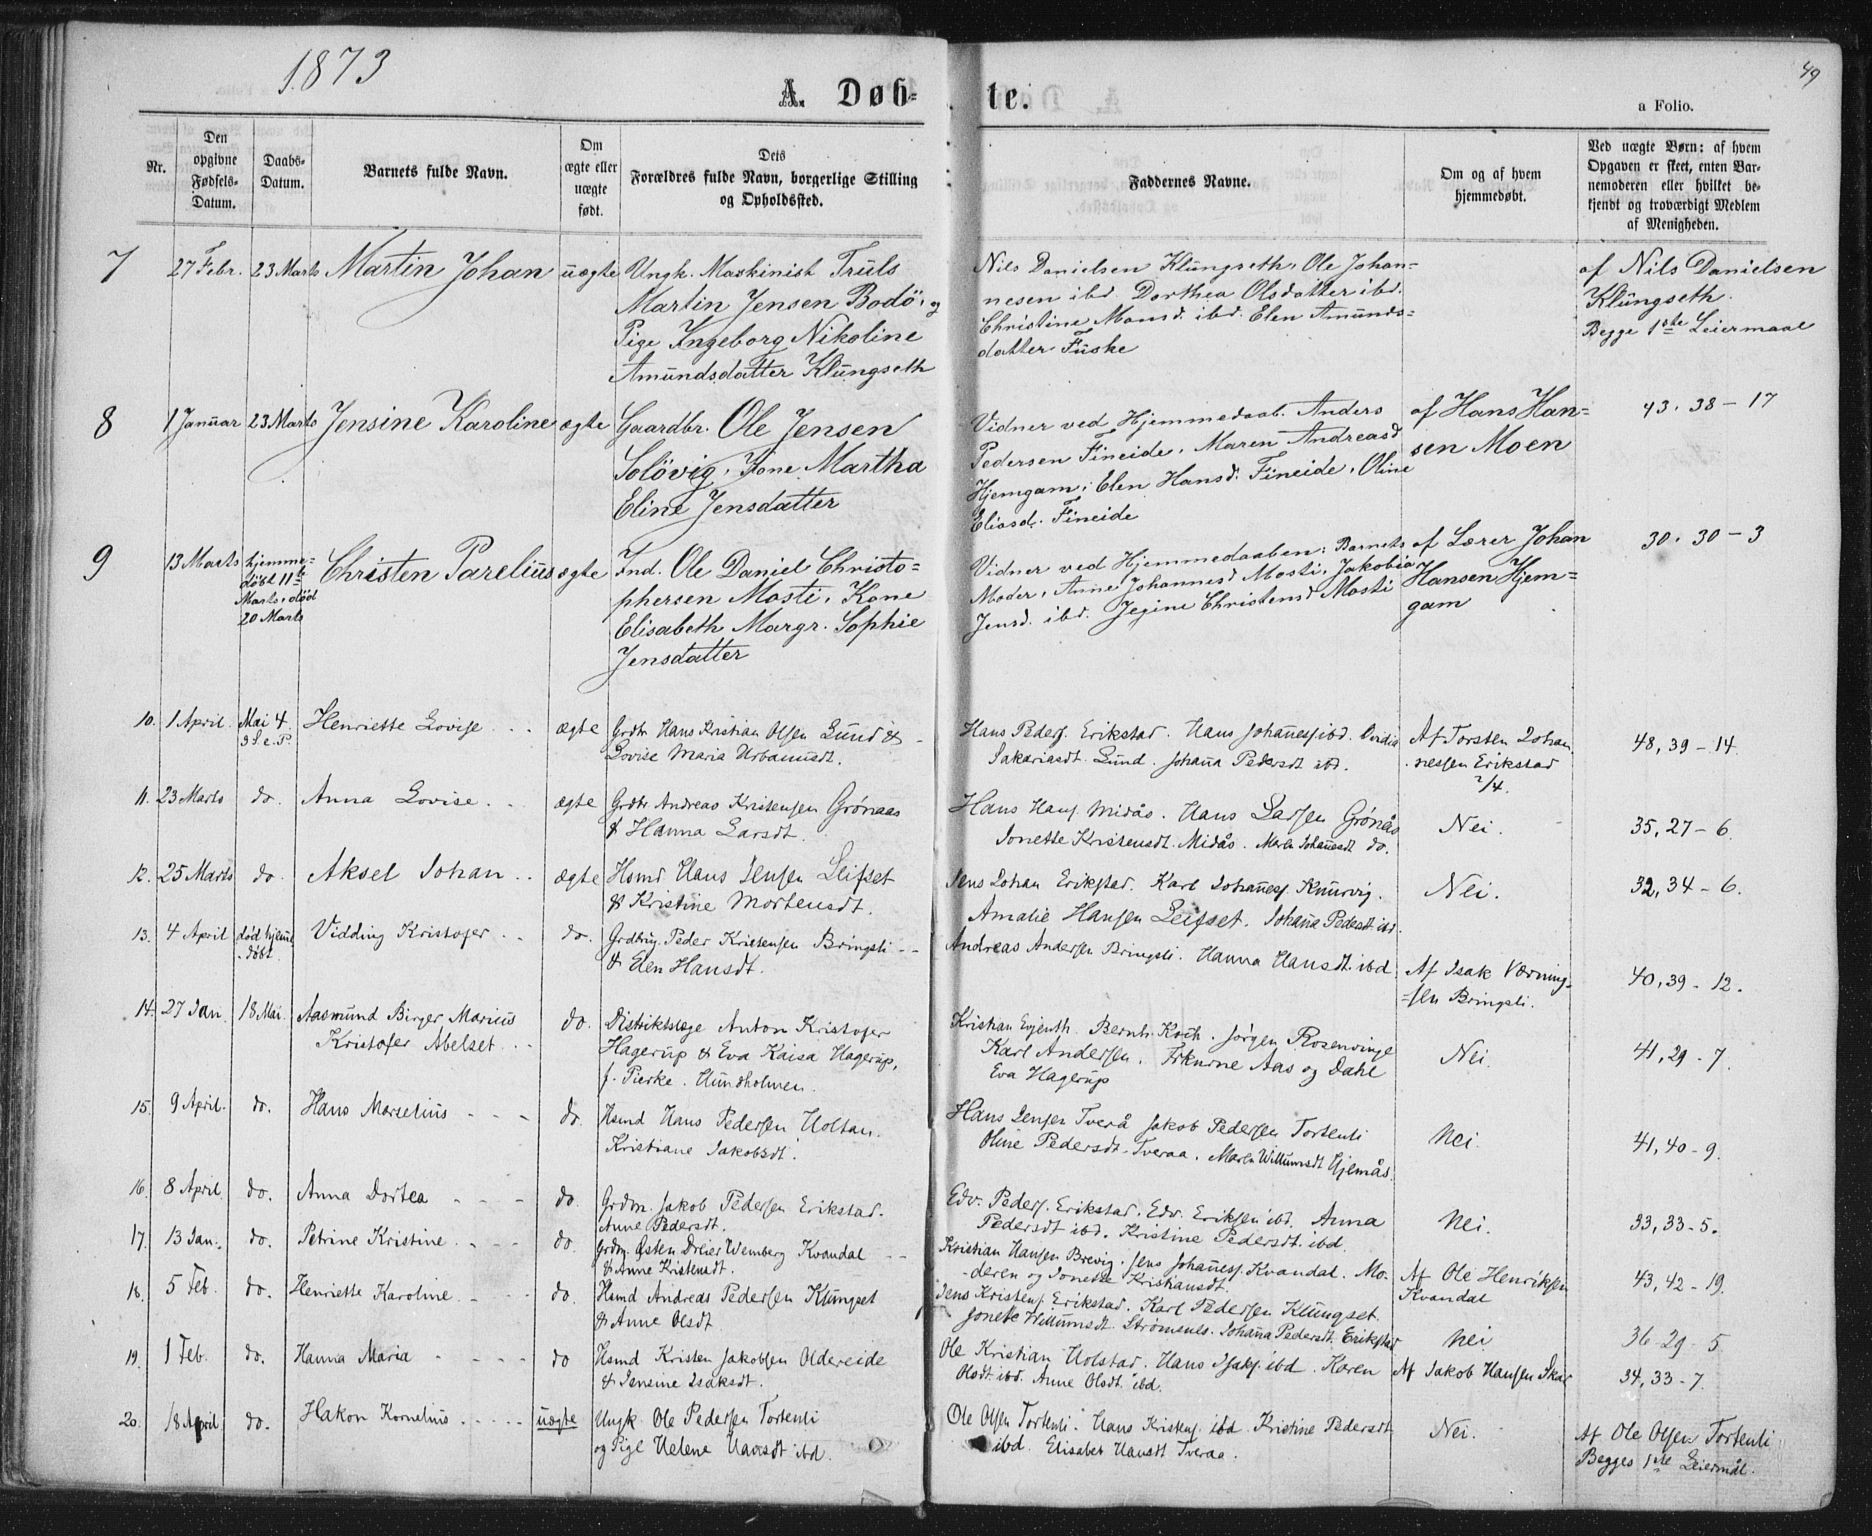 1873
49
A. Døb-
te.
a Folio.
Nr.
Den
opgivne
Fødsels-
Datum.
Daabs-
Datum.
Barnets fulde Navn.
Om
ægte eller
uægte
født.
Dets
Forældres fulde Navn, borgerlige Stilling
og Opholdssted.
Faddernes Navne.
Om og af hvem
hjemmedøbt.
Ved uægte Børn: af hvem
Opgaven er skeet, enten Bar-
nemoderen eller hvilket be-
kjendt og troværdigt Medlem
af Menigheden.
7 27 Febr. 23 Marts Martin Johan uægte Ungk. Maskinist Truls
Martin Jensen Bodö, og
Pige Ingeborg Nikoline
Amundsdatter Klungseth
Nils Danielsen Klungseth, Ole Johan-
nesen ibd. Dorthea Olsdatter ibd.
Christine Monsd. ibd. Elen Amunds-
datter Fuske
af Nils Danielsen
Klungseth.
Begge 1ste Leiermaal
8 1 Januar 23 Marts Jensine Karoline ægte Gaardbr. Ole Jensen
Solövig, Kone Martha
Eline Jensdatter
Vidner ved Hjemmedaab. Anders
Pedersen Fineide, Maren Andreasd
Hjemgam, Elen Hansd. Fineide, Oline
Eliasd. Fineide
af Hans Han-
sen Moen
43. 38 - 17
9 13 Marts hjemme-
døbt 11te
Marts, død
20 Marts
Christen Parelius ægte Ind. Ole Daniel Christo-
phersen Mosti, Kone
Elisabeth Margr. Sophie
Jensdatter
Vidner ved Hjemmedaaben: Barnets
Moder, Anne Johannesd Mosti, Jakobia
Jensd. ibd. Jegine Christensd Mosti
af Lærer Johan
Hansen Hjem-
gam
30. 30 - 3
10. 1 April. Mai 4. Henriette Lovise ægte Grdbr Hans Kristian Olsen Lund &
3 S. e. P.
Lovise Maria Urbanusdt.
Hans Peders. Erikstad. Hans Johanes. ibd.
Sakariasdt. Lund. Johana Pedersdt ibd.
Af Torsten Johan
nessen Erikstad
2/4.
48, 39 - 14.
11. 23 Marts do. Anna Lovise. ægte Grdbr Andreas Kristensen Grönaas
& Hanna Larsdt.
Hans Hans. Midås. Hans Larsen Grönås
Jonette Kristensdt. Midås. Merla Johanesdt do.
Nei.
35, 27 - 6.
12. 25 Marts do. Aksel Johan ægte Hsmd Hans Jensen Leifset
& Kristine Mortensdt.
Jens Johan Erikstad. Karl Johaness. Knurvig.
Amalie Hansen Leifset. Johana Pedersdt ibd.
Nei.
32, 34 - 6.
13. 4 April død hjeme
døbt.
Vidding Kristofer do. Grdbrug. Peder Kristensen Bringsli
& Elen Hansdt.
Andreas Andersen Bringsli. Hanna Hansdt. ibd
Af Isak Værning-
sen Bringsli.
40, 39 - 12.
14. 27 Jan. 18 Mai. Aasmund Birger Marius
Kristofer Abelset
do. Distriktslæge Anton Kristofer
Hagerup & Eva Kaisa Hagerup,
f. Pierke. Hundholmen.
Kristian Evjenth. Bernh. Koch. Jørgen Rosenvinge
Karl Andersen. Frkurne Aas og Dahl
Eva Hagerup
Nei.
41, 29 - 7.
15. 9 April. do. Hans Marselius do. Hsmd Hans Pedersen Holtan.
Kristiane Jakobsdt.
Hans Jensen Tverå Jakob Pedersen Tortenli
Oline Pedersdt. Tveraa. Marla Willumsdt Hjemås.
Nei.
41, 40 - 9.
16. 8 April. do. Anna Dortea do Grdm. Jakob Pedersen Erikstad.
Anne Pedersdt.
Edv. Peders. Erikstad. Edv. Eriksen ibd. Anna
Pedersdt ibd. Kristine Pedersdt. ibd.
Nei.
33, 33 - 5.
17. 13 Jan. do. Petrine Kristine do. Grdm. Østen Dreier Wemberg Kvandal
& Anne Kristensdt.
Kristian Hansen Brevig. Jens Johaness. Kvandal. Mo-
deren og Jonette Kristiansdt.
Af Ole Henriksen
Kvandal
43, 42 - 19.
18. 5 Feb. do. Henriette Karoline do. Hsmd Andreas Pedersen Klungset
& Anne Olsdt
Jens Kristens. Erikstad. Karl Pedersen Klungset.
Jonette Willumsdt. Strömsnes. Johana Pedersdt. Erikstad
Nei
36 29 - 5.
19. 1 Feb. do. Hanna Maria do Hsmd Kristen Jakobsen Oldereide
& Jensine Isaksdt.
Ole Kristian Holstad. Hans Isaks. ibd. Karen
Olsdt. ibd. Anne Olsdt. ibd.
Af Jakob Hansen Skar
34, 33 - 7.
20. 18 April do. Hakon Kornelius uægte Ungk. Ole Pedersen Tortenli
og Pige Helene Hansdt ibd.
Ole Olsen Tortenli. Hans Kristens. ibd Kristine Pedersdt
ibd. Elisabet Hansdt Tveraa.
Nei.
Af Ole Olsen Tortenli
Begges 1ste Leiermål.